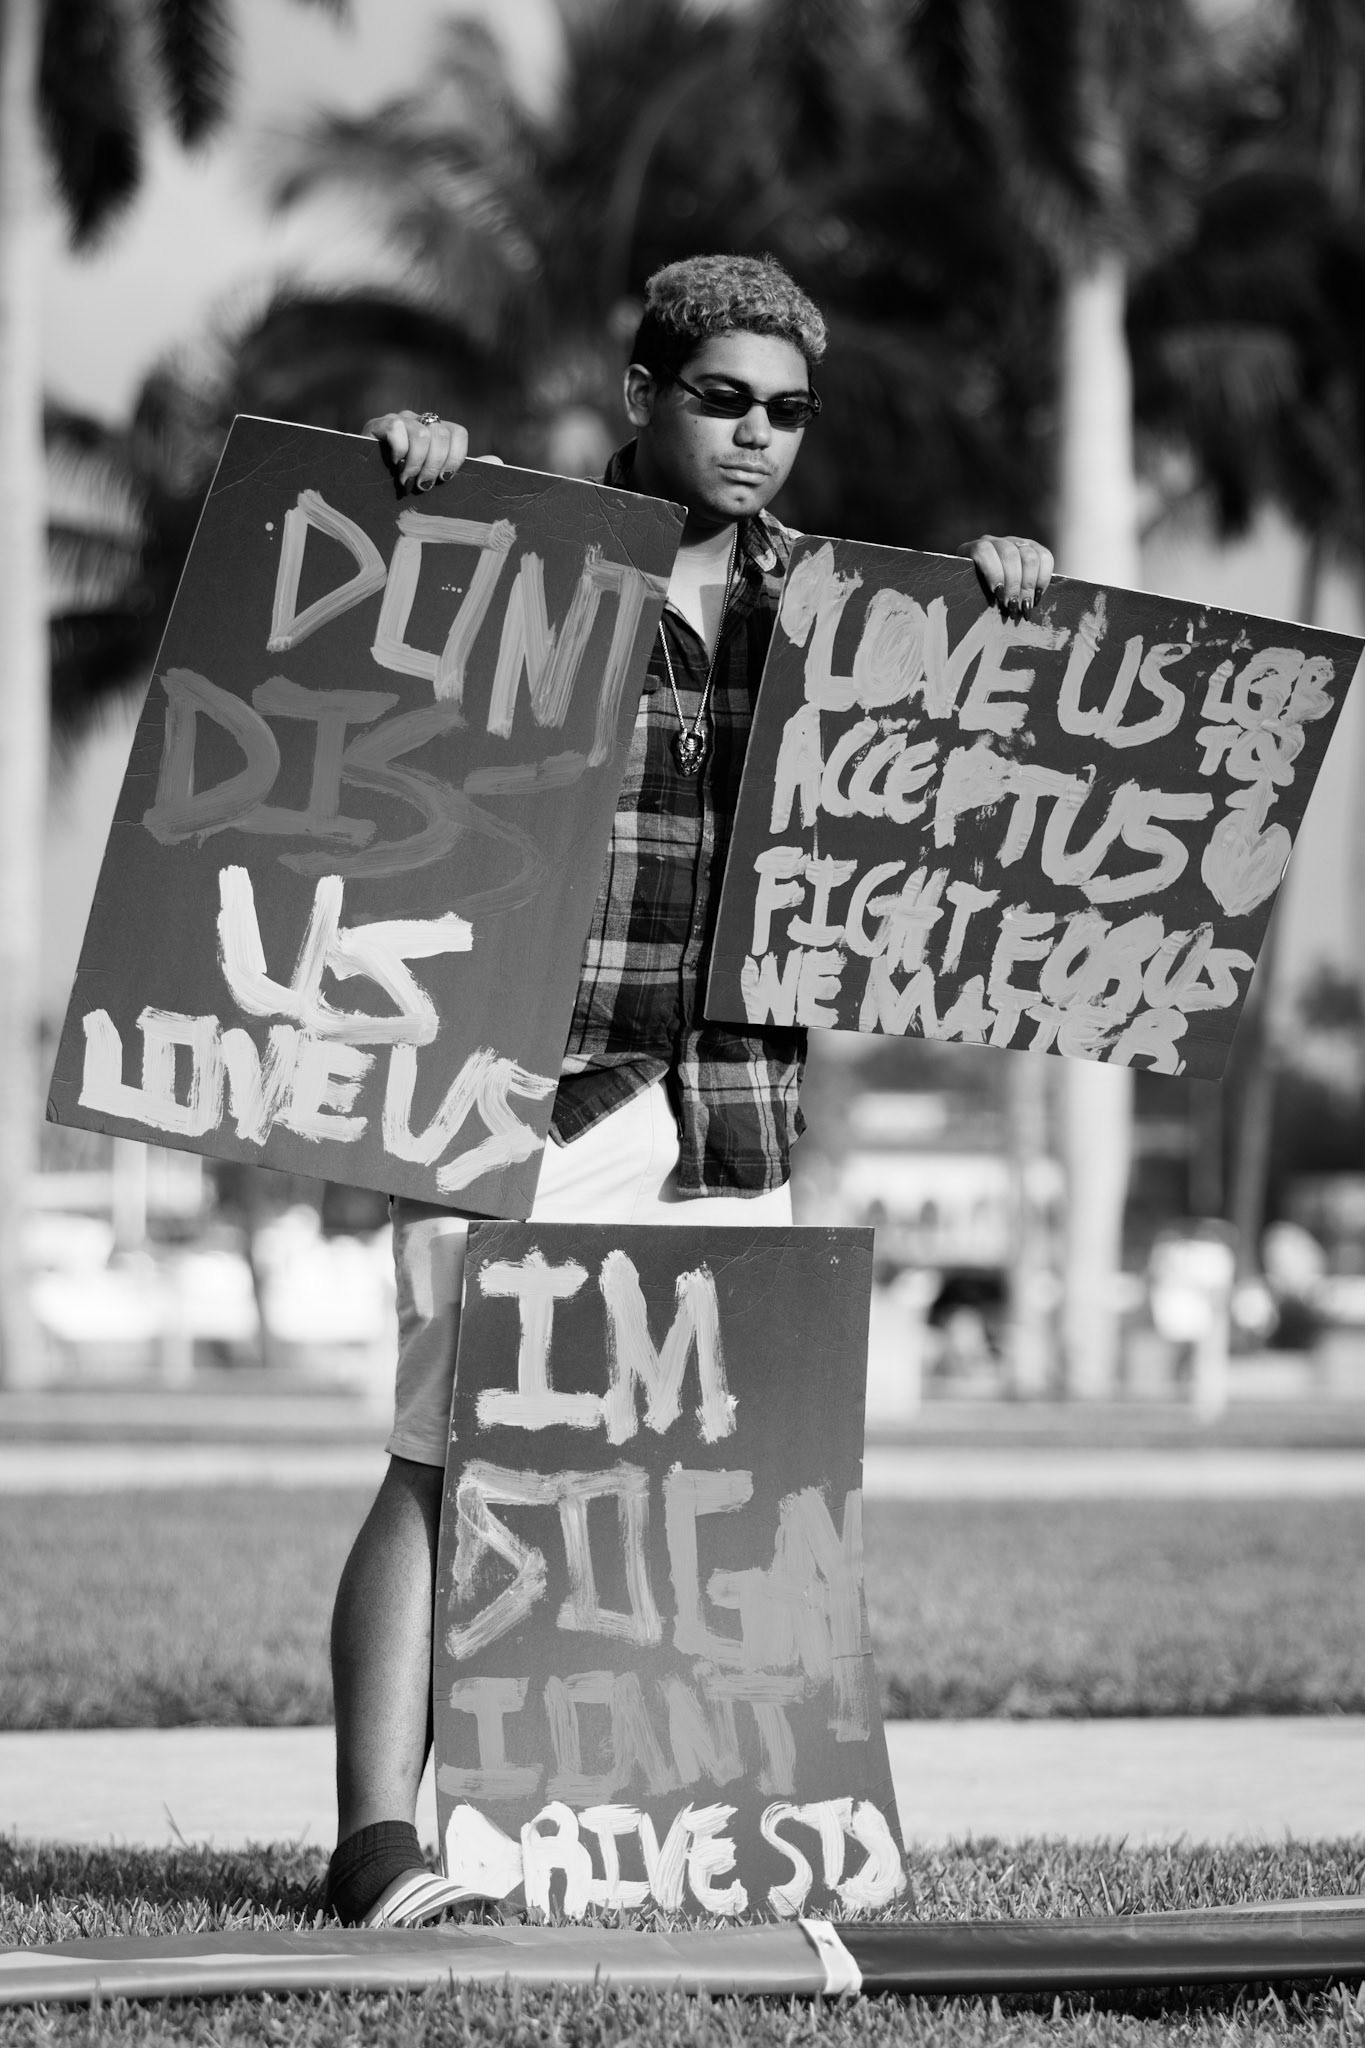 DONT
DIS-
US
LOVE US
"LOVE US
ACCEPT US
FIGHT FOR US
WE MATTER
LGB
TQ
I
IM
SO GAY
I DONT
DRIVE STR8